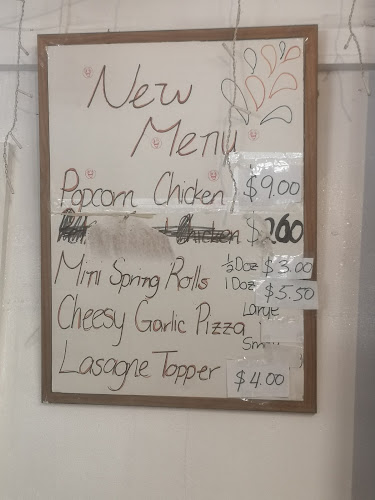 New
Menu
Popcorn Chicken $9.00
Chicken $2.60
Mini Spring Rolls ½Doz $3.00
1 Doz $5.50
Cheesy Garlic Pizza Large
Small
Lasagne Topper $4.00